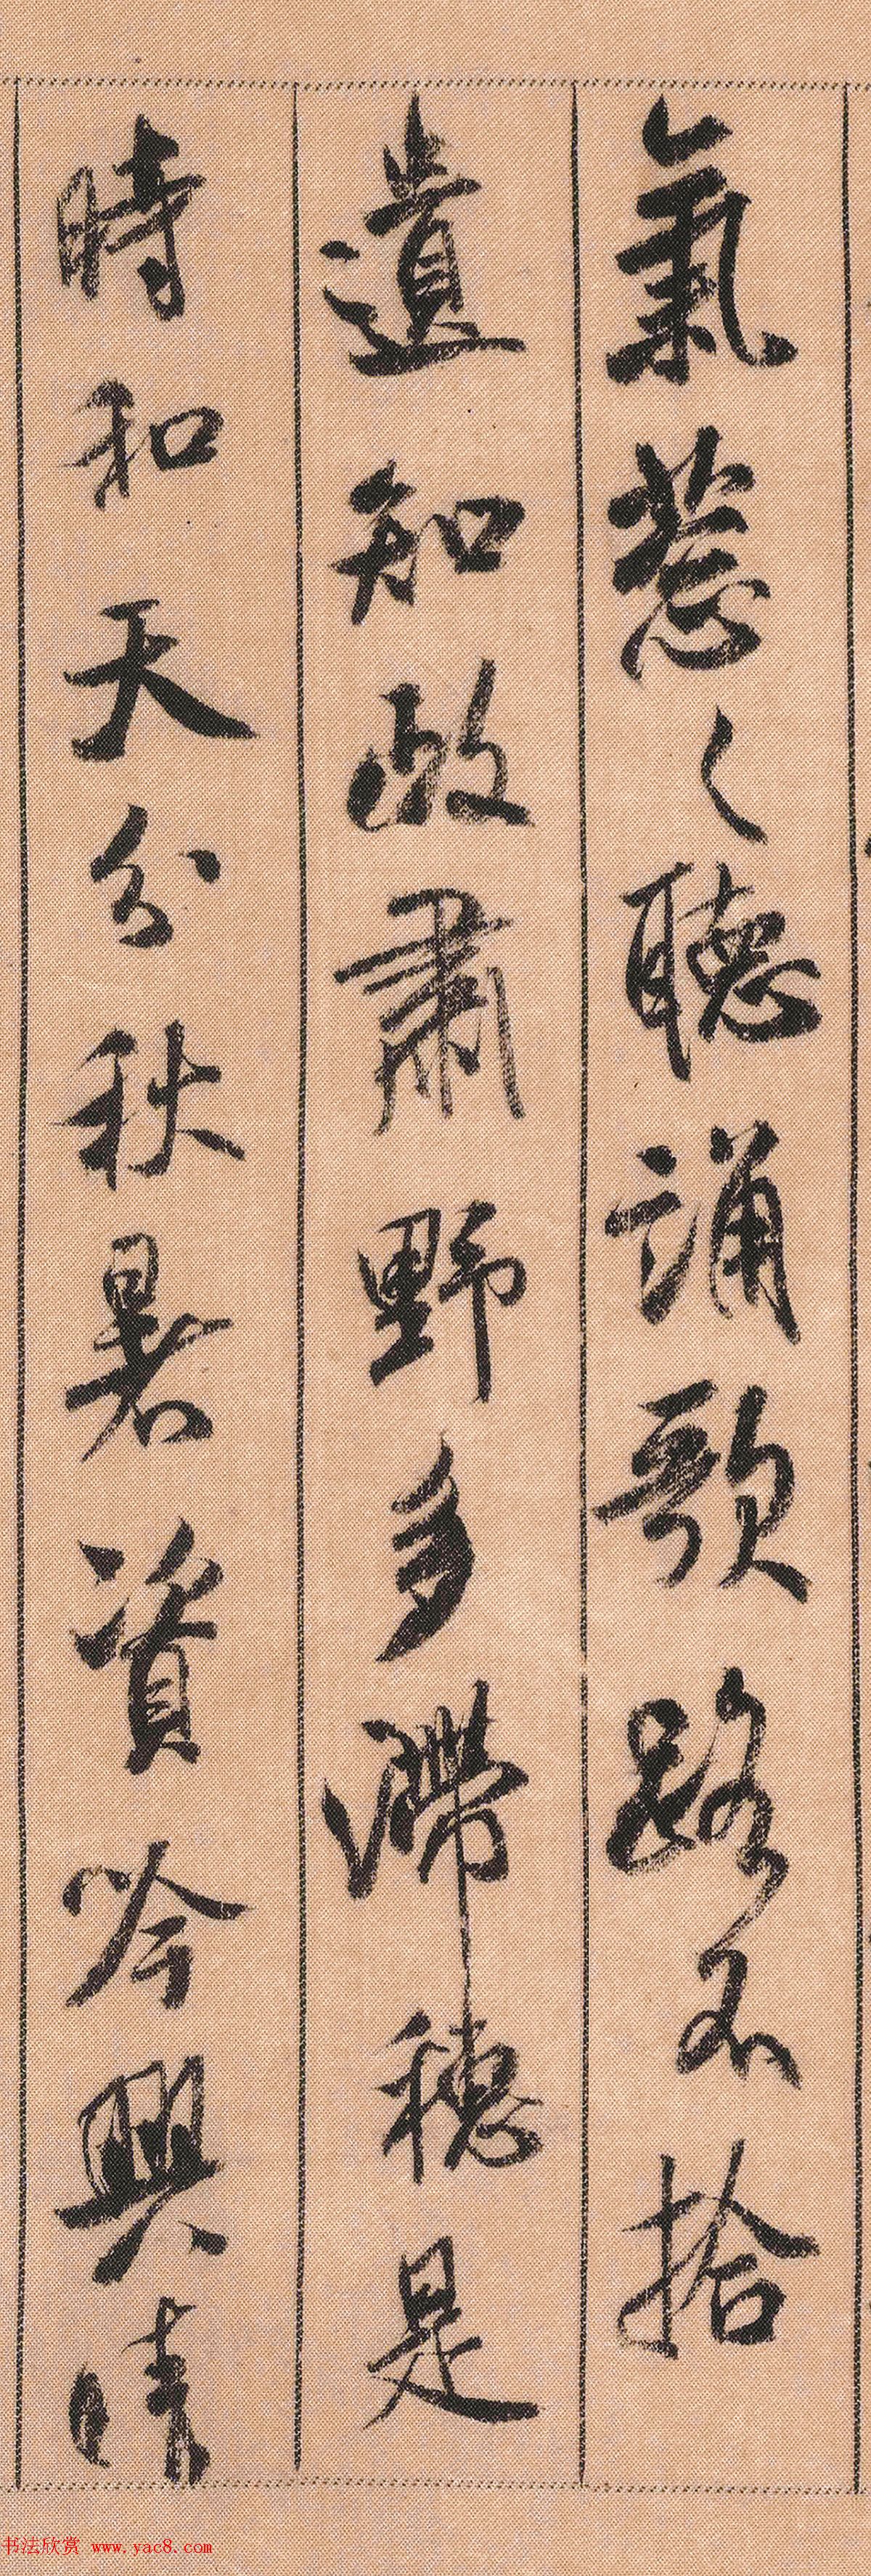 氣葱〻聽誦歌路不拾
遺知政肅野多滯穗是
時和天分秋暑資吟興晴
书法欣赏 www.yac8.com